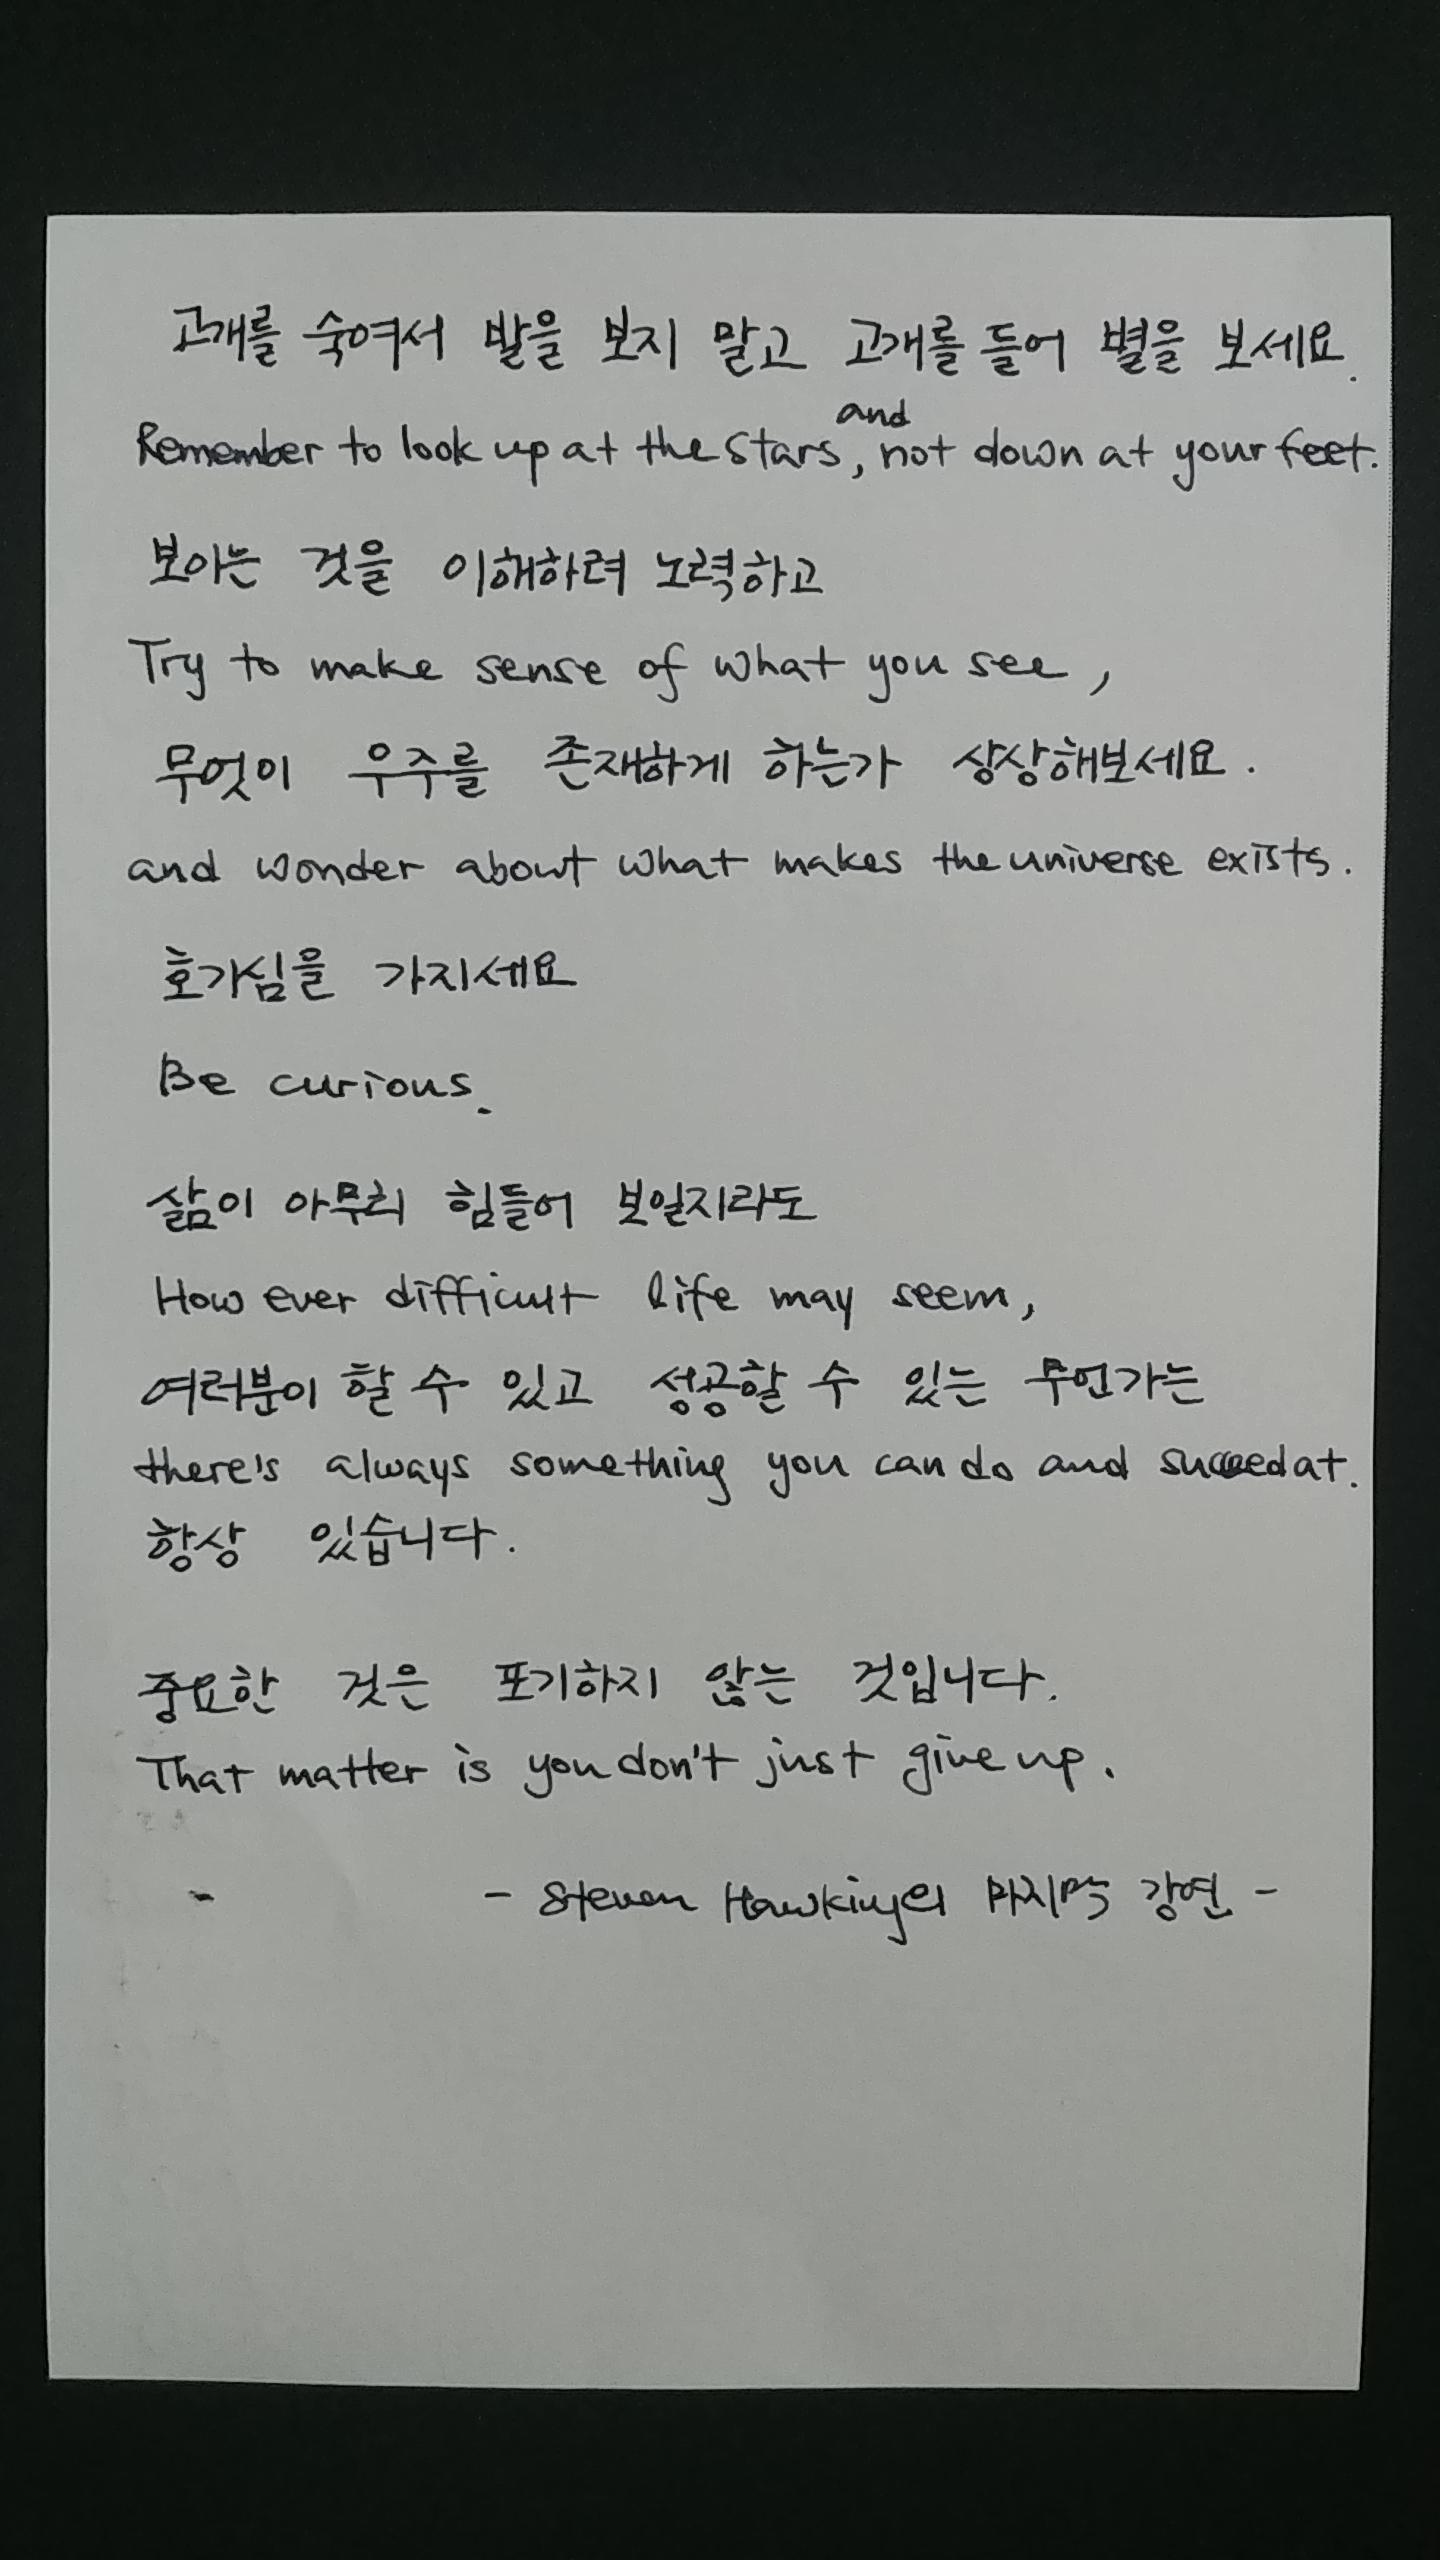 고개를 숙여서 발을 보지 말고 고개를 들어 별을 보세요.
Remember to look up at the stars, and not down at your feet.
보아는 것을 이해하려 노력하고
Try to make sense of what you see,
무엇이 우주를 존재하게 하는가 상상해보세요.
and wonder about what makes the universe exists.
호가심을 가지세요
Be curious.
삶이 아무리 힘들어 보일지라도
How ever difficult life may seem,
여러분이 할 수 있고 성공할 수 있는 무언가는
there's always something you can do and succeed at.
항상 있습니다.
중요한 것은 포기하지 않는 것입니다.
That matter is you don't just give up.
- Steven Hawking의 마지막 강연 -